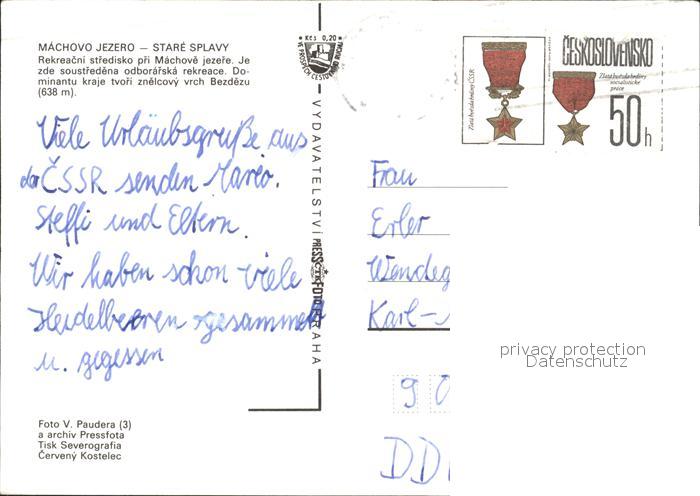 MÁCHOVO JEZERO — STARÉ SPLAVY
Rekreační středisko při Máchově jezeře. Je
zde soustředěna odborářská rekreace. Do-
minantu kraje tvoří znělcový vrch Bezdězu
(638 m).
Viele Urlaubsgruße aus
der ČSSR senden Mario.
Steffi und Eltern.
Wir haben schon viele
Heidelbeeren gesammelt
u. gegessen
Foto V. Paudera (3)
a archiv Pressfota
Tisk Severografia
Červený Kostelec
Kčs 0,20
VYDAVATELSTVÍ PRESSFOTO PRAHA
Zlatá hvězda hrdiny ČSSR
ČESKOSLOVENSKO
Zlatá hvězda hrdiny
socialistické
práce
50 h
Frau
Erler
Karl-
privacy protection
Datenschutz
9